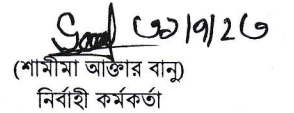 ৩১/৭/২৩
(শামীমা আক্তার বানু)
নির্বাহী কর্মকর্তা